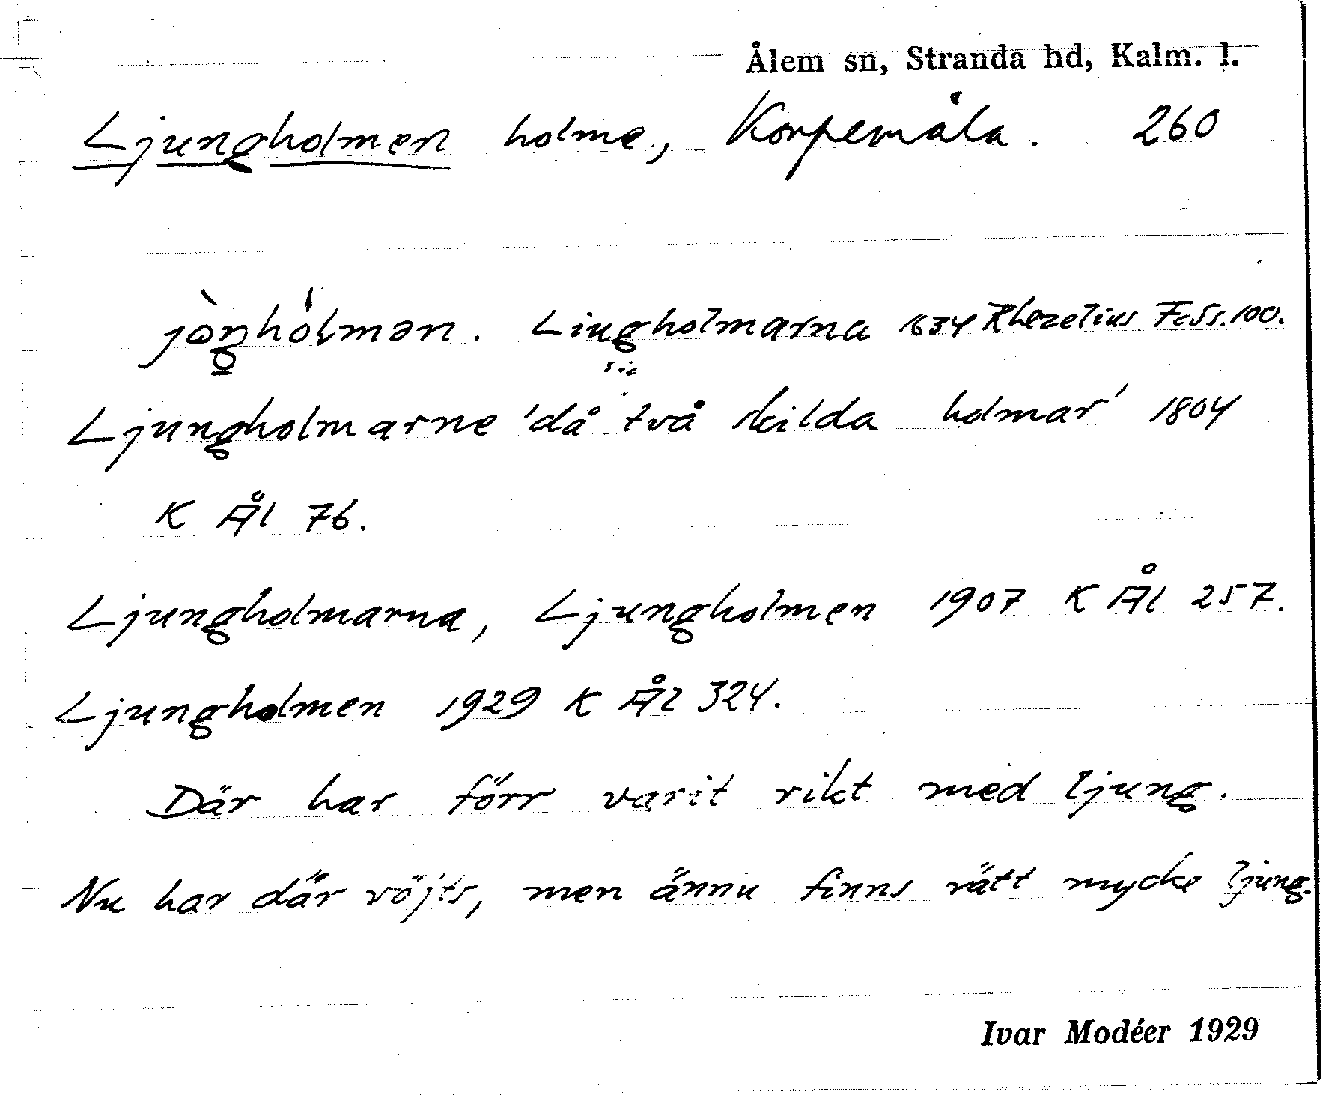 Ålem sn, Stranda hd, Kalm. l.
Ljungholmen holme, Korpemåla. 260
jòŋhólmən. Liugholmarna 1634 Rhezelius Fc5s. 100.
sic
Ljungholmarne 'då två skilda holmar' 1804
K Ål 76.
Ljungholmarna, Ljungholmen 1907 K Ål 257.
Ljungholmen 1929 K Ål 324.
Där har förr varit rikt med ljung.
Nu har där röjts, men ännu finns rätt mycke ljung.
Ivar Modéer 1929